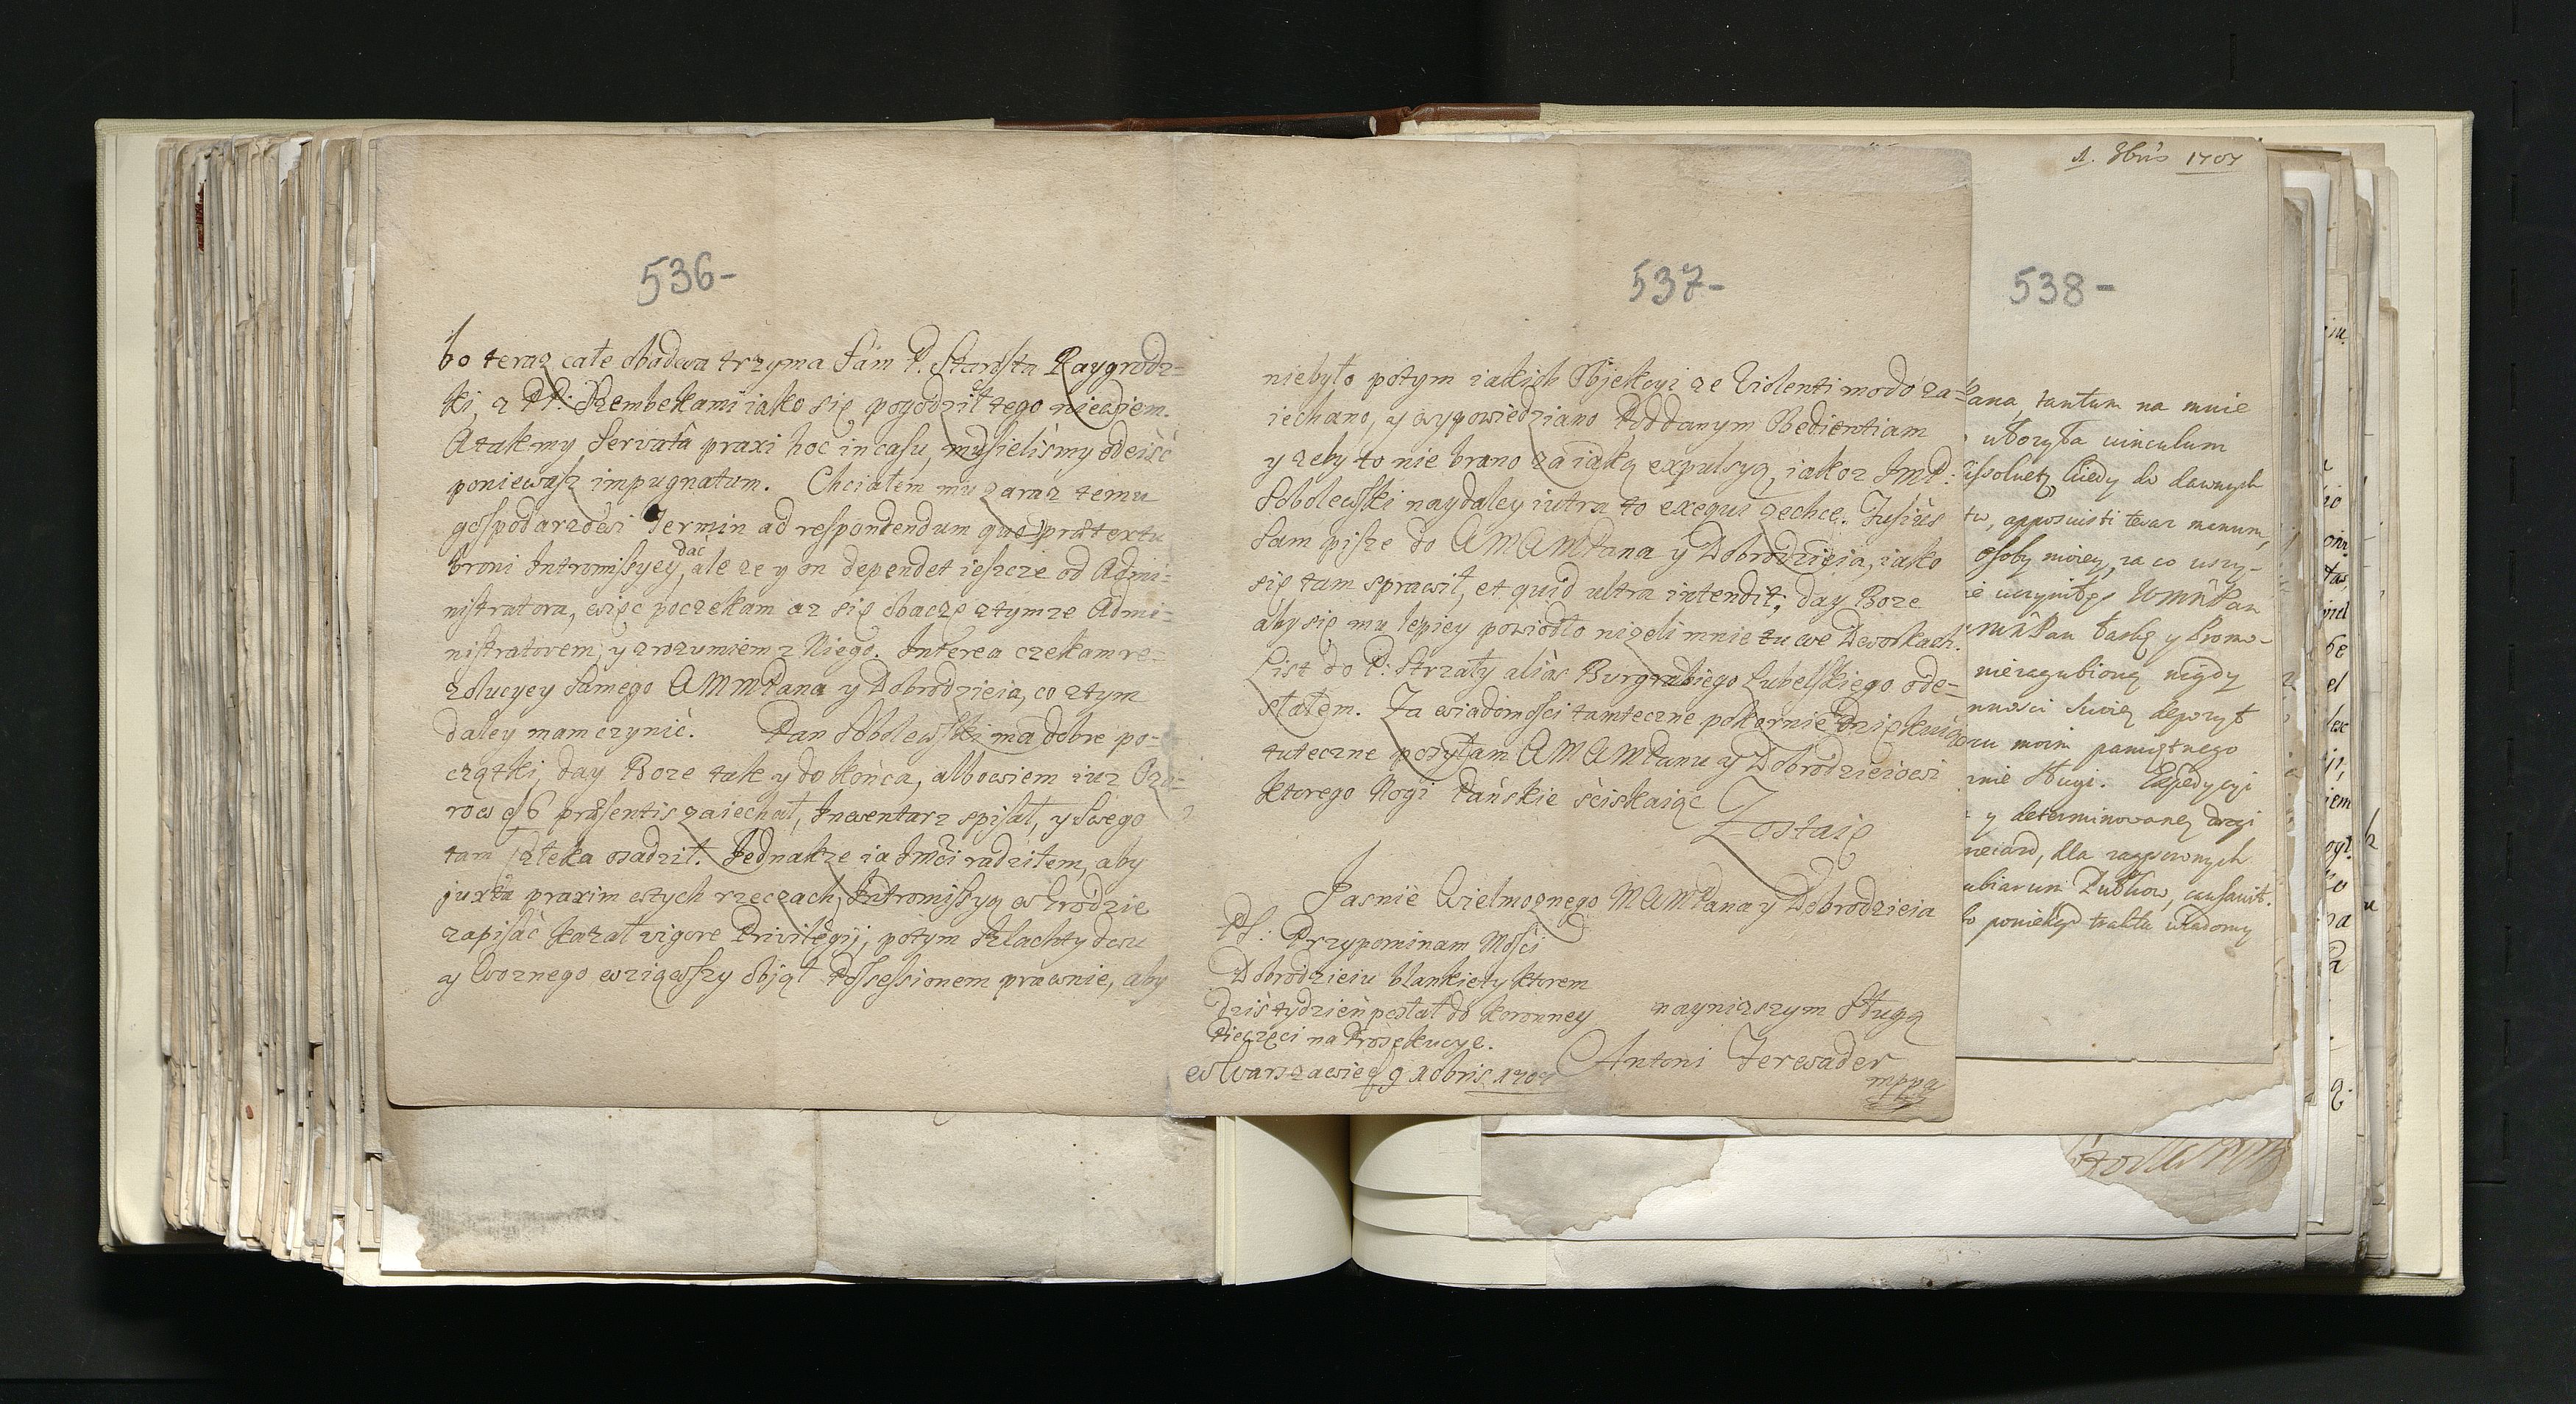 536-
bo teraz całe obadwa trzyma Sam P. Starosta Raygrodz=
ki, z PP: Szembekami iako się pogodził tego niewiem.
A tak my Servata praxi hoc in casu, musieliśmy odeiść
poniewasz impugnatum. Chciałem mu zaraz temu
gospodarzowi Termin ad respondendum quo prætextu
dać
broni Intromissyey, ale ze y on dependet ieszcze od Admi=
nistratora, więc poczekam az się obaczę ztymze Admi=
nistratorem, y zrozumiem z Niego. Interea czekam re=
zolucyey Samego WMMPana y Dobrodzieia, co ztym
daley mam czynić. Pan Sobolewski ma dobre po=
czątki, day Boze tak y do końca, albowiem iuz Oza=
row 6 præsentis zaiechał, Inwentarz spisał, y Swego
tam osadził. Jednakze ia Jmci radziłem, aby
juxta praxim wtych rzeczach, Intromissyą w Grodzie
zapisać kazał vigore Privilegij, potym Szlachty dwu
y Woznego wziąwszy objął Possessionem prawnie, aby
537-
niebyło potym iakich Objekcyi ze Violenti modo za=
iechano, y wypowiedziano Poddanym Obedientiam
y zeby to nie brano za iaką expulsyą, iakoz JmP:
Sobolewski naydaley iutra to exequi zechce. Fusius
Sam pisze do WMWMPana y Dobrodzieia, iako
się tam sprawił, et quid ultra intendit; day Boze
aby się mu lepiey powiodło nizeli mnie tu we Dworkach.
List do P: Strzały aliàs Burgrabiego Lubelskiego ode=
słałem. Za wiadomosci tamteczne pokornie dziękuię
tuteczne posyłam WMWMPanu y Dobrodzieiowi
ktorego Nogi Pańskie ściskaiąc Zostaię
Jasnie Wielmoznego MWMPana y Dobrodzieia
PS: Przypominam Mości
Dobrodzieiu blankiety ktorem
dziś tydzień posłał do Koronney
Pieczęci na Prosekucye.
w Warszawie 9 Xbris 1707
nayniszszym Sługą
Antoni Terewader
mppa
1. Xbris 1707
538-
tantum na mnie
vinculum
kiedy do dawnych
apposuisti teraz manum,
osoby moiey, za co uszy-
WMMPan
MMPan łaskę y
niezagubioną nigdy
moim pamiętnego
Sługi. Expedycyi
y determinowaney drogi
dla
Publicow, causavit.
poniekąd traktu wiadomy